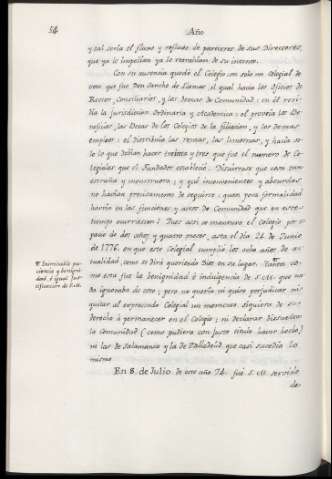 54
Año
y tal seria el fluxo y refluxo de pareceres de sus Directores,
que ya le impelian ya le retrahian de su intento.
Con su ausencia quedó el Colegio con solo un Colegial de
voto que fue Don Sancho de Llamas, el qual hacia los Oficios de
Rector, Consiliarios, y los demas de Comunidad: en él resi-
dia la jurisdiccion Ordinaria y Academica: el proveia los Be-
neficios, las Becas de los Colegios de la filiacion, y los demas
empleos: el distribuía las rentas, las limosnas, y hacia so-
lo lo que debian hacer treinta y tres que fue el numero de Co-
legiales que el Fundador estableció. Discurrase que cosa tan
estraña y monstruosa, y qué inconvenientes y absurdos
no habian precisamente de seguirse, quan poca formalidad
habria en las funciones y actos de Comunidad que en este
tiempo ocurriesen? Pues asi se mantuvo el Colegio por es-
pacio de dos años y quatro meses, asta el dia 24 de Junio
de 1776, en que este Colegial cumplió los ocho años de ac-
tualidad, como se dirá queriendo Dios en su lugar. Tanta co-
mo esta fue la benignidad è indulgencia de S. M. que na-
da ignoraba de esto; pero no queria, ni quiso perjudicar, ni
quitar al expresado Colegial un momento siquiera de su
derecho à permanecer en el Colegio; ni declarar disuelta
la Comunidad (como pudiera con justo titulo haver hecho)
ni las de Salamanca y la de Valladolid, que casi sucedia lo
mismo
En 8. de Julio de este año 74. fué S. M. servido
de